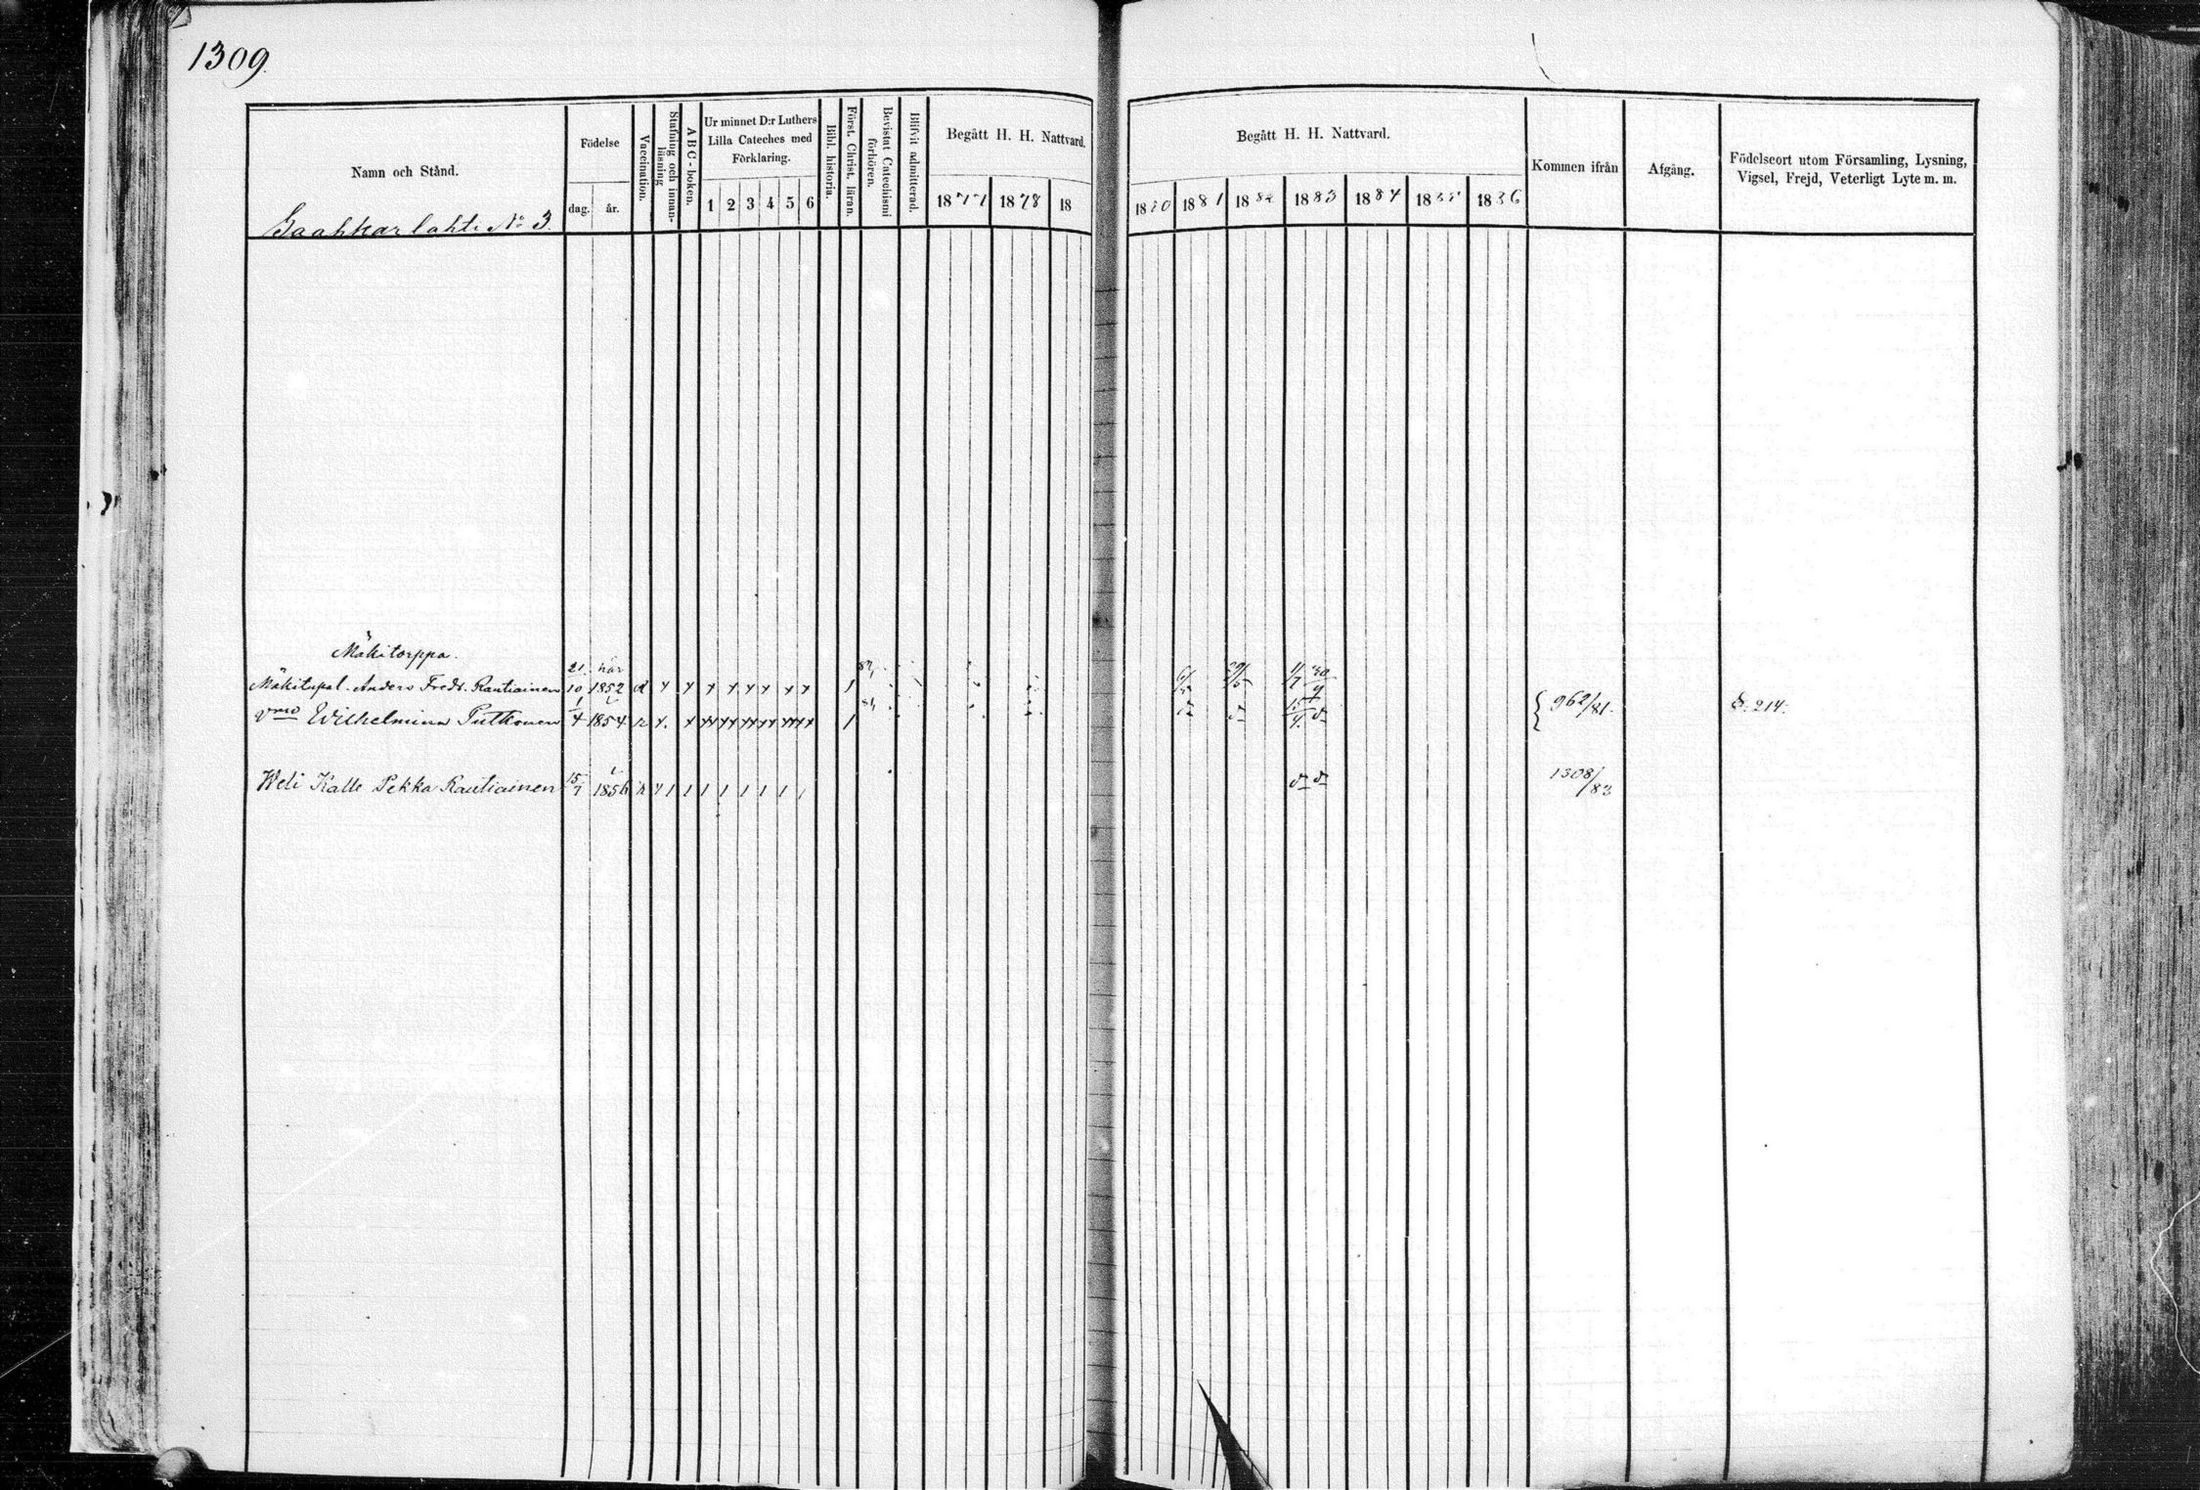 1309.
Namn och Stånd.
Födelse
dag.
år.
Vaccination.
Stafning och innan-
läsning
ABC-boken.
Ur minnet D:r Luthers
Lilla Cateches med
Förklaring.
1 2 3 4 5 6
Bibl. historia.
Först. Christ. läran.
Bevistat Catechismi
förhören.
Blifvit admitterad.
Begått H. H. Nattvard.
1877 1878 18
Begått H. H. Nattvard.
1880 1881 1882 1883 1884 1885 1886
Kommen ifrån
Afgång.
Födelseort utom Församling, Lysning,
Vigsel, Frejd, Veterligt Lyte m. m.
No 3.
Mäkitorppa.
Mäkitupal. Anders Fredr. Rautiainen 21/10 här 1852 962/81. S. 214.
Wilhelmina Putkonen 1/4 1854
Weli Kalle Pekka Rautiainen 15/7 1856 1308/83